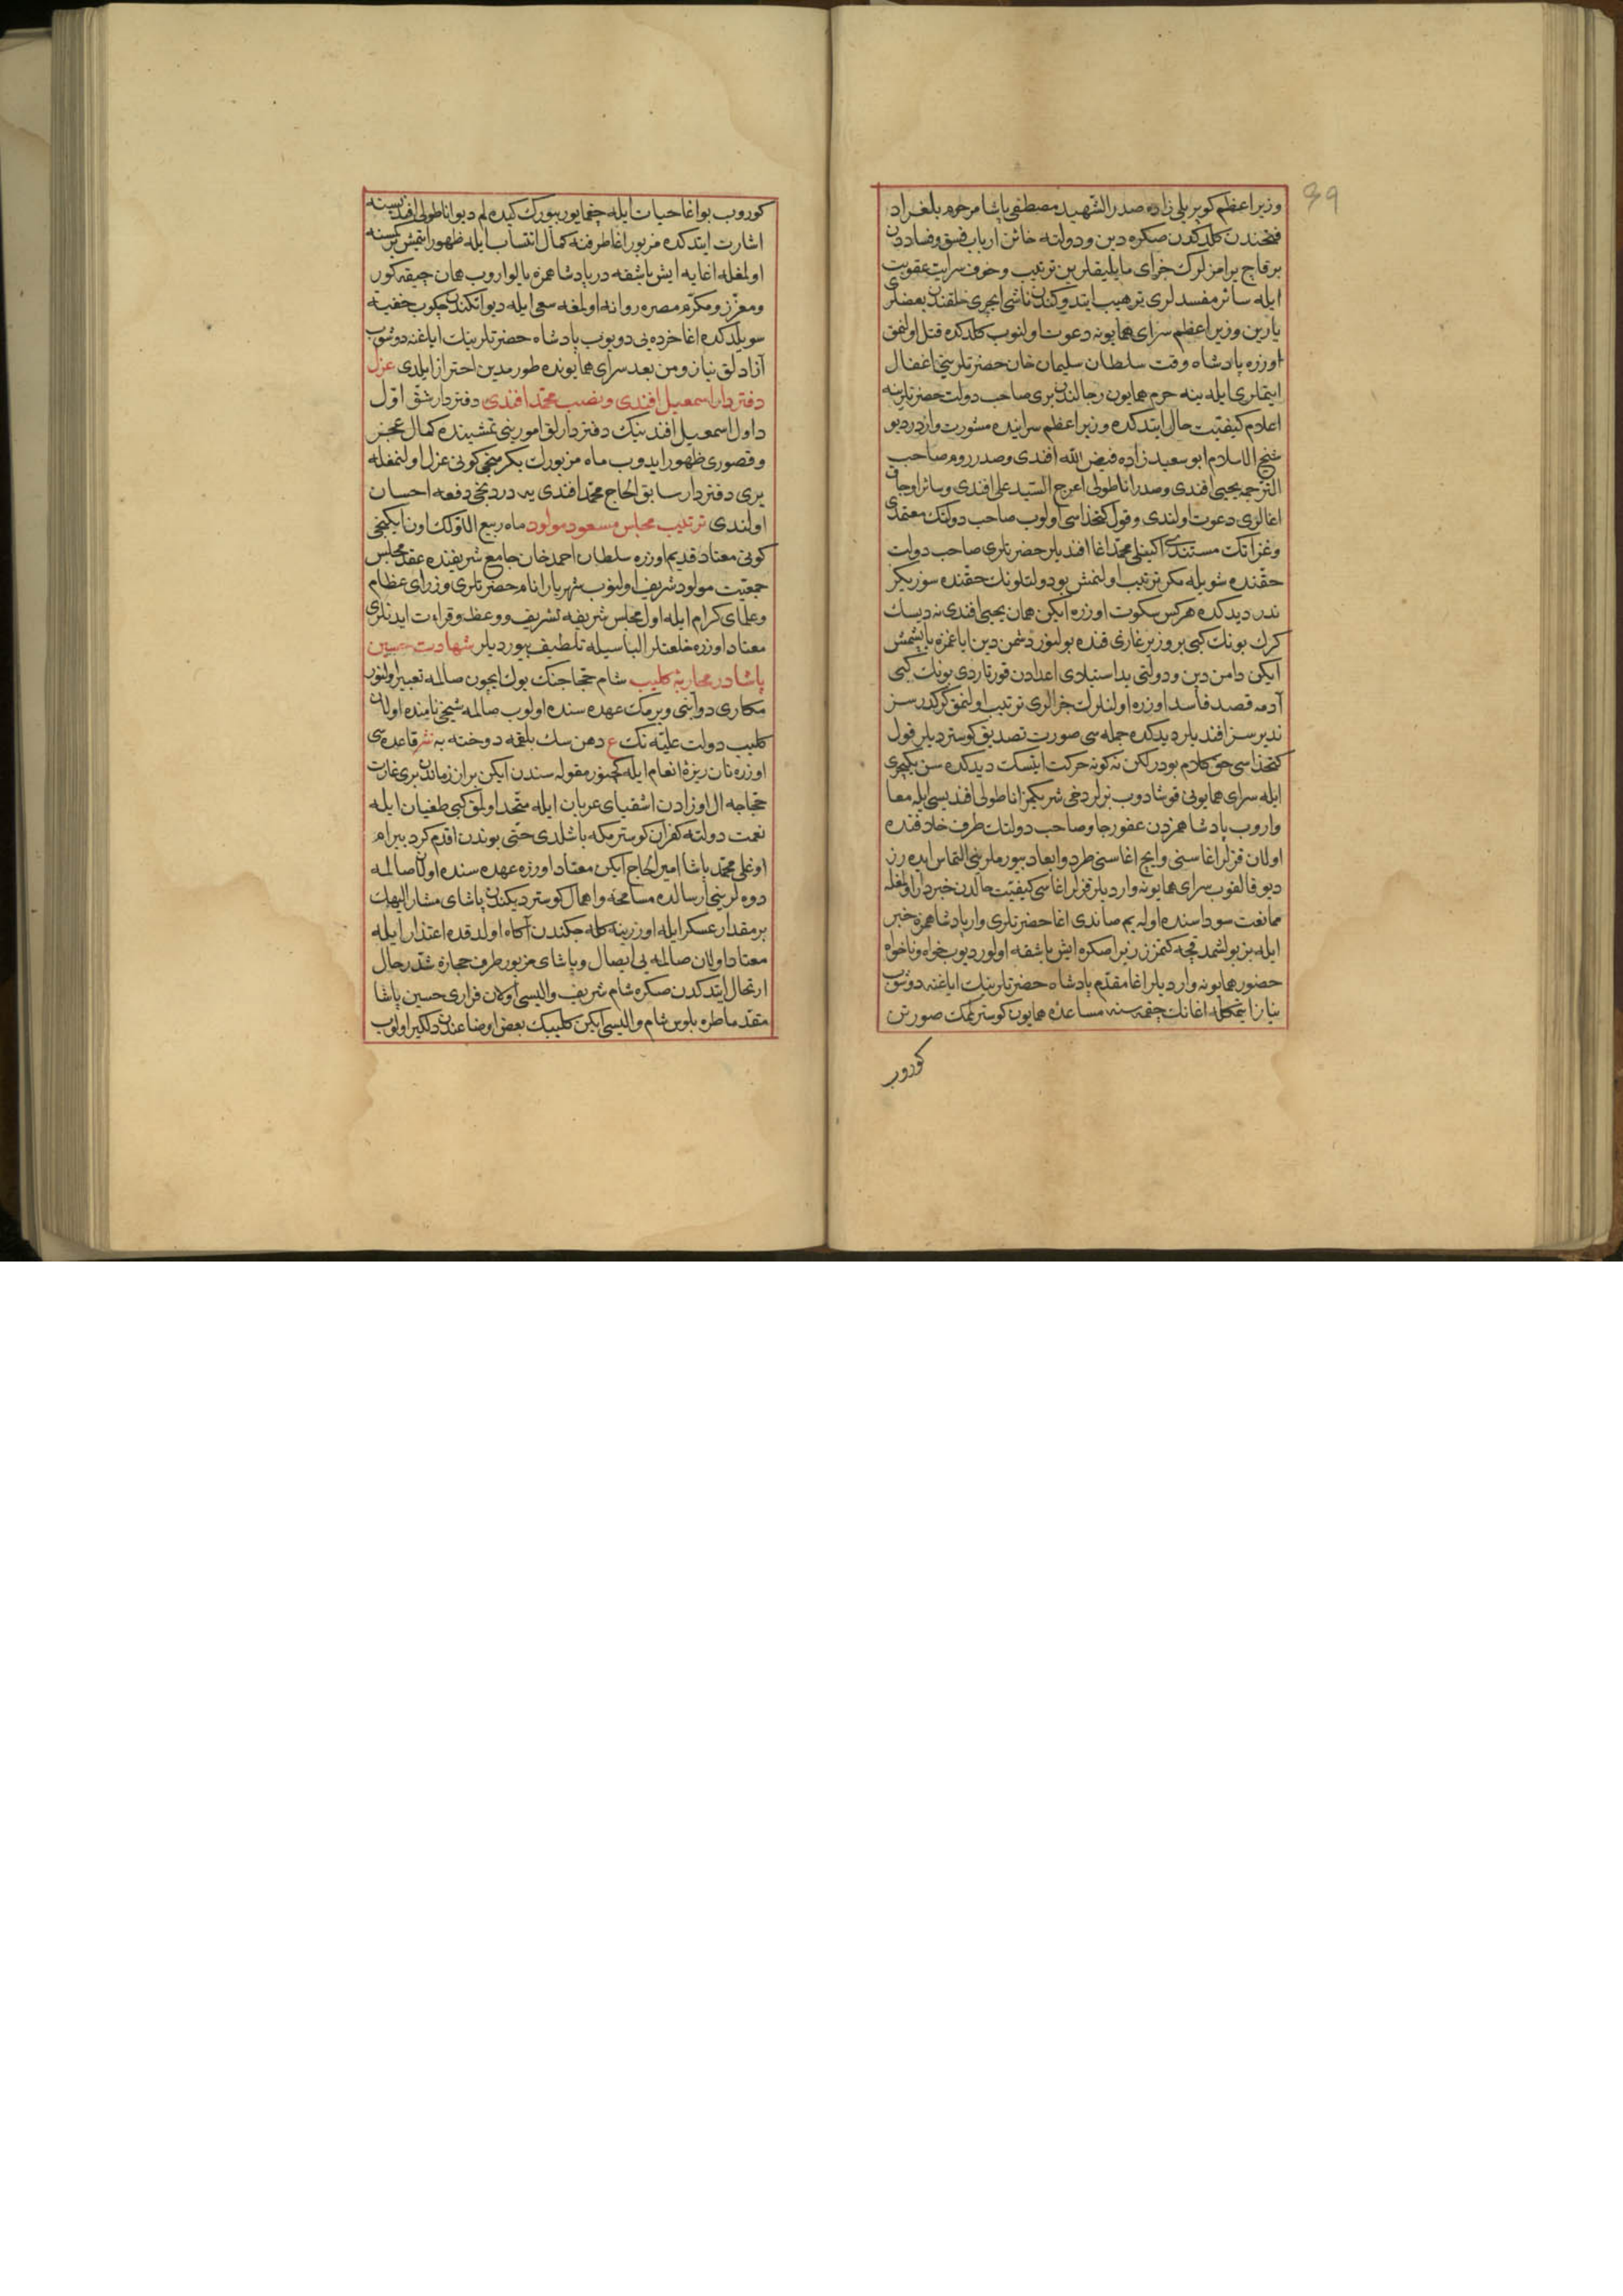 39
وزیر اعظم کوپریلی زاده صدر الشهید مصطفی پاشا مرحوم بلغراد
فتحندن کلدکدن صکره دین و دولته خائن ارباب فسق و فساددن
برقاچ یرامزلرك جزای مایلیقلرین ترتیب و خوف سرایت عقوبت
ایله سائر مفسدلری ترهیب ایتدوکندن ناشی ایچری خلقندن بعضلری
یارین وزیر اعظم سرای همایونه دعوت اولنوب کلدکده قتل اولنمق
اوزره پادشاه وقت سلطان سلیمان خان حضرتلرینی اغفال
ایتملری ایله ینه حرم همایون رجالندن بری صاحب دولت حضرتلرینه
اعلام کیفیت حال ایتدکده وزیر اعظم سراینده مشورت واردر دیو
شیخ الاسلام ابو سعید زاده فیض الله افندی و صدر روم صاحب
الترجمه یحیی افندی و صدر اناطولی اعرج السید علی افندی و سائر اوجاق
اغالری دعوت اولندی و قول کتخداسی اولوب صاحب دولتك معتمدی
و غزاتك مستندی اکینلی محمد اغا افندیلر حضرتلری صاحب دولت
حقنده شویله مکر ترتیب اولنمش بو دولتلونك حقنده سوزیکز
ندر دیدکده هرکس سکوت اوزره ایکن همان یحیی افندی نه دیسك
کرك بونك کبی بر وزیر غازی قنده بولنور دشمن دین ایاغمزه یاپشمش
ایکن دامن دین و دولتی ید استیلای اعدادن قورتاردی بونك کبی
آدمه قصد فاسد اوزره اولنلرك جزالری ترتیب اولنمق کرکدر سز
ندیرسز افندیلر دیدکده جمله سی صورت تصدیق کوستردیلر قول
کتخداسی حق کلام بودر لکن نه کونه حرکت ایتسك دیدکده سن یکیچری
ایله سرای همایونی قوشادوب بزلر دخی شریکمز اناطولی افندیسی ایله معا
واروب پادشاهمزدن عفو رجا و صاحب دولتك طرف خلافنده
اولان قزلر اغاسنی و ایچ اغاسنی طرد و ابعاد بیورملرینی التماس ایده رز
دیو قالقوب سرای همایونه واردیلر قزلر اغاسی کیفیت حالدن خبردار اولمغله
ممانعت سوداسنده اوله یم صاندی اغا حضرتلری وار پادشاهمزه خبر
ایله بز بولشمدقجه کتمزز زیرا صکره ایش باشقه اولور دیوب خواه و ناخواه
حضور همایونه واردیلر اغا مقدم پادشاه حضرتلرینك ایاغنه دوشوب
نیاز ایتمکله اغانك چقمسنه مساعده همایون کوسترلمك صورتن
کوروب
کوروب بو اغا حیات ایله چقمایور بیورك کیده لم دیو اناطولی افندیسنه
اشارت ایتدکده مزبور اغا طرفنه کمال انتساب ایله ظهور ایتمش کمسنه
اولمغله اغایه ایش باشقه در پادشاهمزه یالواروب همان چیقه کور
و معزز و مکرم مصره روانه اولمغه سعی ایله دیو انکندن چکوب خفیة
سویلدکده اغا خرده یی دویوب پادشاه حضرتلرینك ایاغنه دوشوب
آزادلق نیاز و من بعد سرای همایونده طورمدین احتراز ایلدی عزل
دفتردار اسمعیل افندی و نصب محمد افندی دفتردار شق اول
داول اسمعیل افندینك دفتردارلق امورینی تمشیتده کمال عجز
و قصوری ظهور ایدوب ماه مزبورك یکرمنجی کونی عزل اولنمغله
یری دفتردار سابق الحاج محمد افندی یه دردنجی دفعه احسان
اولندی ترتیب مجلس مسعود مولود ماه ربیع الاولك اون ایکنجی
کونی معتاد قدیم اوزره سلطان احمد خان جامع شریفنده عقد مجلس
جمعیت مولود شریف اولنوب شهریار انام حضرتلری وزرای عظام
و علمای کرام ایله اول مجلس شریفه تشریف و وعظ و قراءت ایدنلری
معتاد اوزره خلعتلر الباسیله تلطیف بیوردیلر شهادت حسین
پاشا در محاربهٔ کلیب شام حجاجنك یولی ایچون صالمه تعبیر اولنور
مکاری دوابنی ویرمك عهده سنده اولوب صالمه شیخی نامنده اولان
کلیب دولت علیه نك ع دهن سك بلقمه دوخته به نثر قاعده سی
اوزره نان ریزهٔ انعام ایله مقوله سندن ایکن بر از زماندن بری غارت
حجاجه ال اوزادن اشقیای عربان ایله متحد اولمق کبی طغیان ایله
نعمت دولته کفران کوسترمکه باشلدی حتی بوندن اقدم کرد بیرام
اوغلی محمد پاشا امیر الحاج ایکن معتاد اوزره عهده سنده اولان صالمه
دوه لرینی ارسالده مسامحه و اهمال کوستردیکندن پاشای مشار الیهك
بر مقدار عسکر ایله اوزرینه کله جکندن آکاه اولدقده اعتذار ایله
معتاد اولان صالمه یی ایصال و پاشای مزبور طرف حجازه شد رحال
ارتحال ایتدکدن صکره شام شریف والیسی اولان فراری حسین پاشا
مقدما طره بلوس شام والیسی ایکن کلیبك بعض اوضاعندن دلکیر اولوب